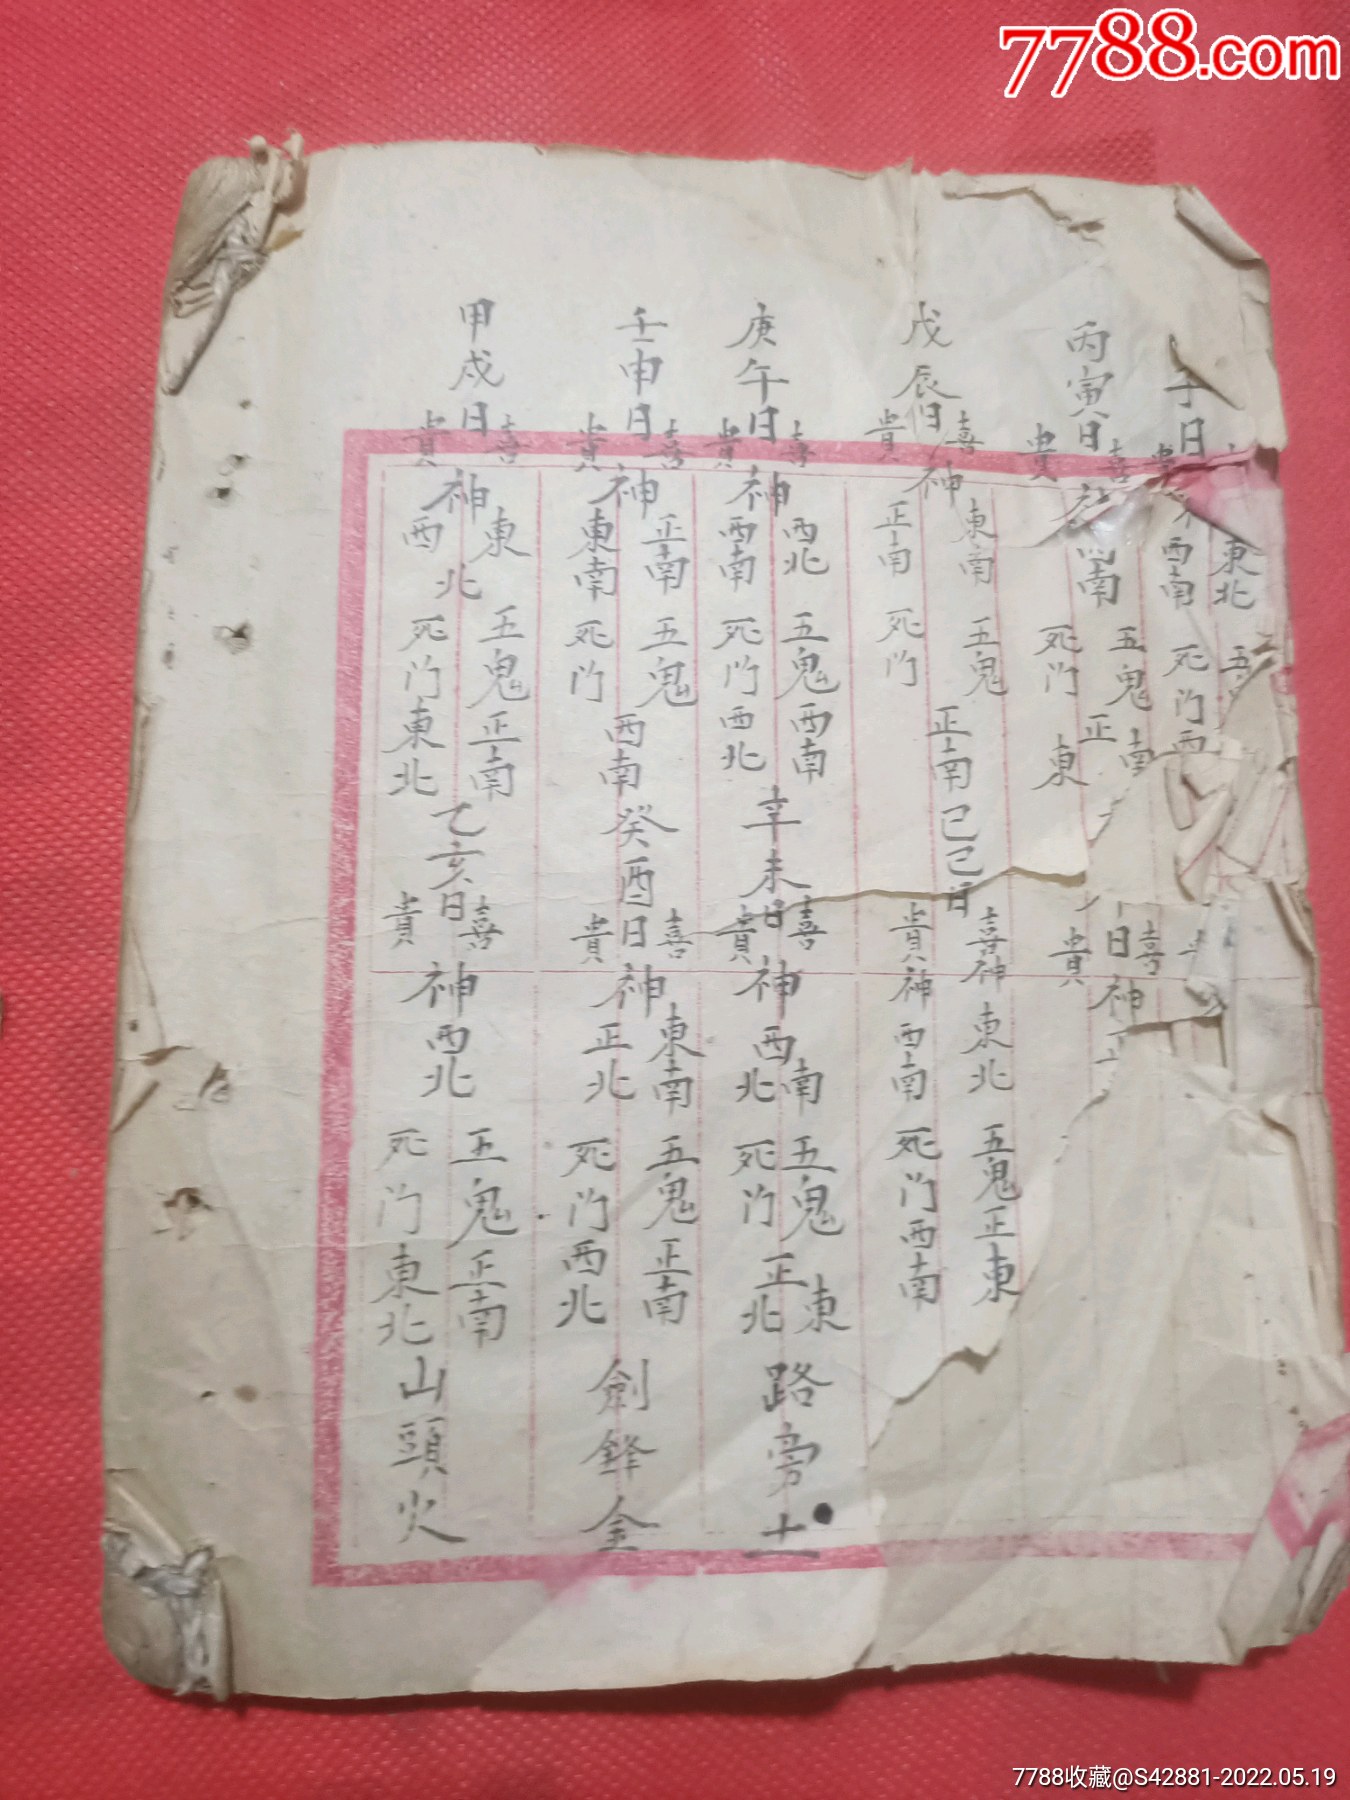 7788.com
子日
貴 西南 死门西
東北 五
丙寅日
喜
貴
南 五鬼正南
死门 東
日喜
貴神
戊辰日
喜神東南 五鬼
貴 正南 死门
正南
己巳日
喜神東北 五鬼正東
貴神西南 死门西南
庚午日
喜神西北 五鬼西南
貴 西南 死门西北
辛未日
喜神西南 五鬼正東
貴 西北 死门正北
路旁土
壬申日
喜神正南 五鬼
貴 東南 死门
西南
癸酉日
喜神東南 五鬼正南
貴 正北 死门西北
劍鋒金
甲戌日
喜神東北 五鬼正南
貴 西北 死门東北
乙亥日
喜神西北 五鬼正南
貴 死门東北
山頭火
7788收藏@S42881-2022.05.19